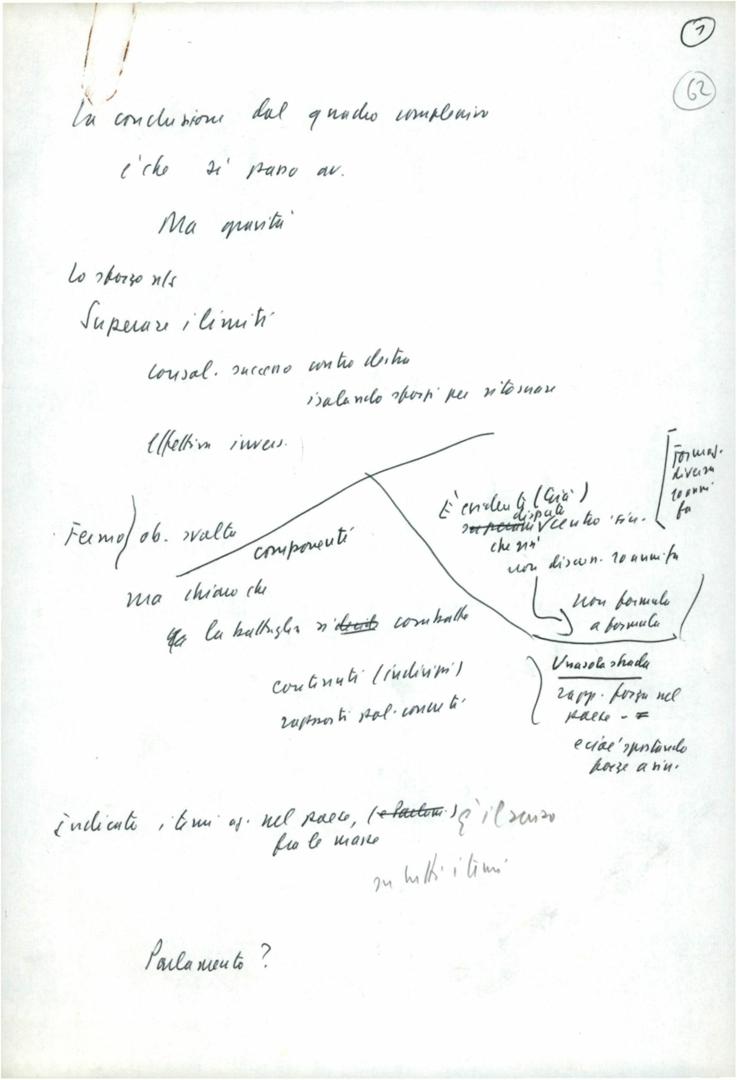 7
62
La conclusione dal quadro complessivo
è che si passo av.
Ma gravità
Lo sforzo n/s
Superare i limiti
consol. successo contro destra
isolando sforzi per ritornare
Effettiva invers.
Fermo) ob. svolta
componenti
ma chiaro che
la battaglia si combatte
contenuti (indirizzi)
rapporti pol. concreti
È evidente (Già)
disputa
centro-sin.
che non
non discon. 10 anni fa
Formaz.
diversa
10 anni
fa
non formula
a formula
Una sola strada
rapp. forza nel
paese - =
e cioè spostando
forze a sin.
Indicato i temi og. nel paese, è il senso
fra le masse
su tutti i temi
Parlamento?